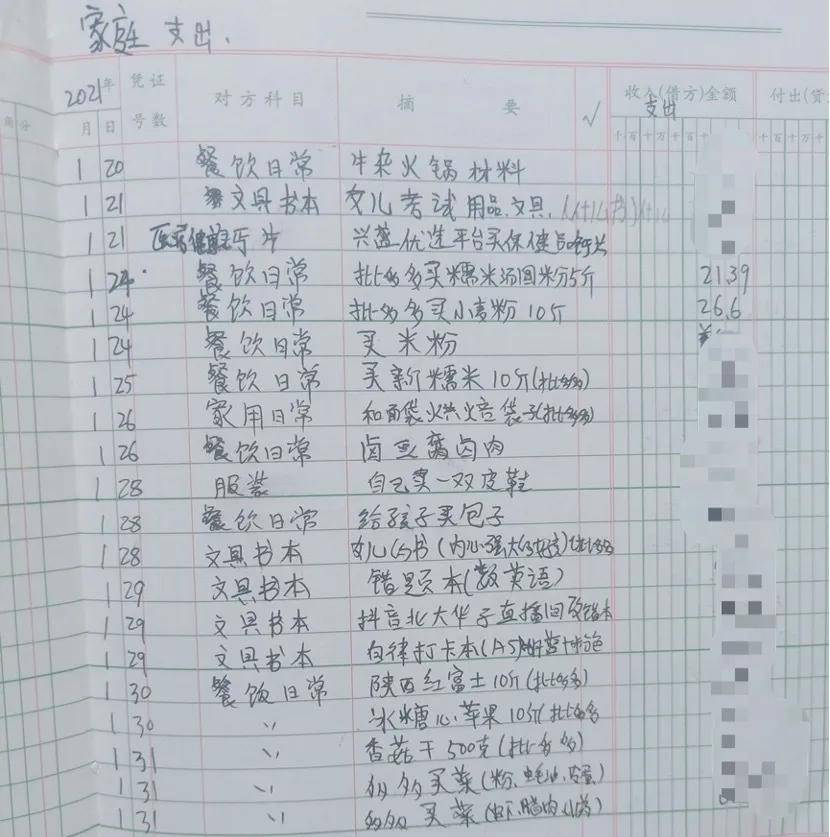 家庭 支出.
2021年 凭证 对方科目 摘 要 √ 收入(借方)金额 付出(贷
支出
月 日 号数 千百十万千 千百十万千
1 20 餐饮日常 牛杂火锅材料
1 21 文具书本 女儿考试用品、文具
1 21 医疗健康 兴盛优选平台买保健品钙片
1 24 餐饮日常 拼多多买糯米汤圆米粉5斤 21.39
1 24 餐饮日常 拼多多买小麦粉10斤 26.6
1 24 餐饮日常 买米粉
1 25 餐饮日常 买新糯米10斤(拼多多)
1 26 家用日常 和面袋烘焙袋子(拼多多)
1 26 餐饮日常 卤豆腐卤肉
1 28 服装 自己买一双皮鞋
1 28 餐饮日常 给孩子买包子
1 28 文具书本 女儿 书(内心强大 女孩)拼多多
1 29 文具书本 错题本(数英语)
1 29 文具书本 抖音北大华子直播间 错本
1 29 文具书本 自律打卡本(A5)
1 30 餐饭日常 陕西红富士10斤(拼多多)
1 30 〃 冰糖心苹果10斤 拼多多
1 31 〃 香菇干500克(拼多多)
1 31 〃 多多买菜(粉、蚝油、皮蛋)
1 31 〃 多多买菜(虾、腊肉、 )